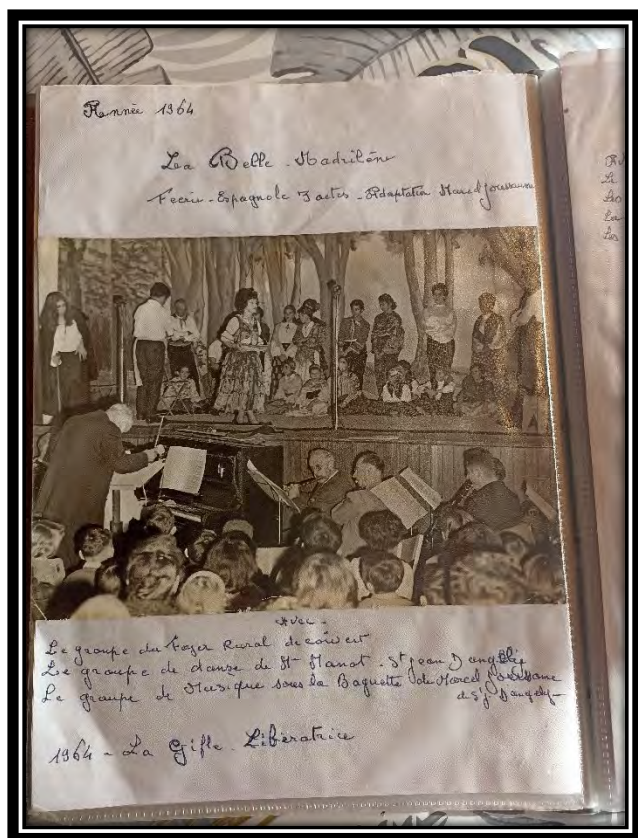 Année 1964
La Belle Madrilène
Feerie - Espagnole 3 actes - Adaptation Marcel Joussaume
Avec -
Le groupe du Foyer Rural de
Le groupe de danse de Mr Manot - St jean D'angely
Le groupe de Musique sous la Baguette de Marcel
de St J. Dangely -
1964 - La Gifle Libératrice